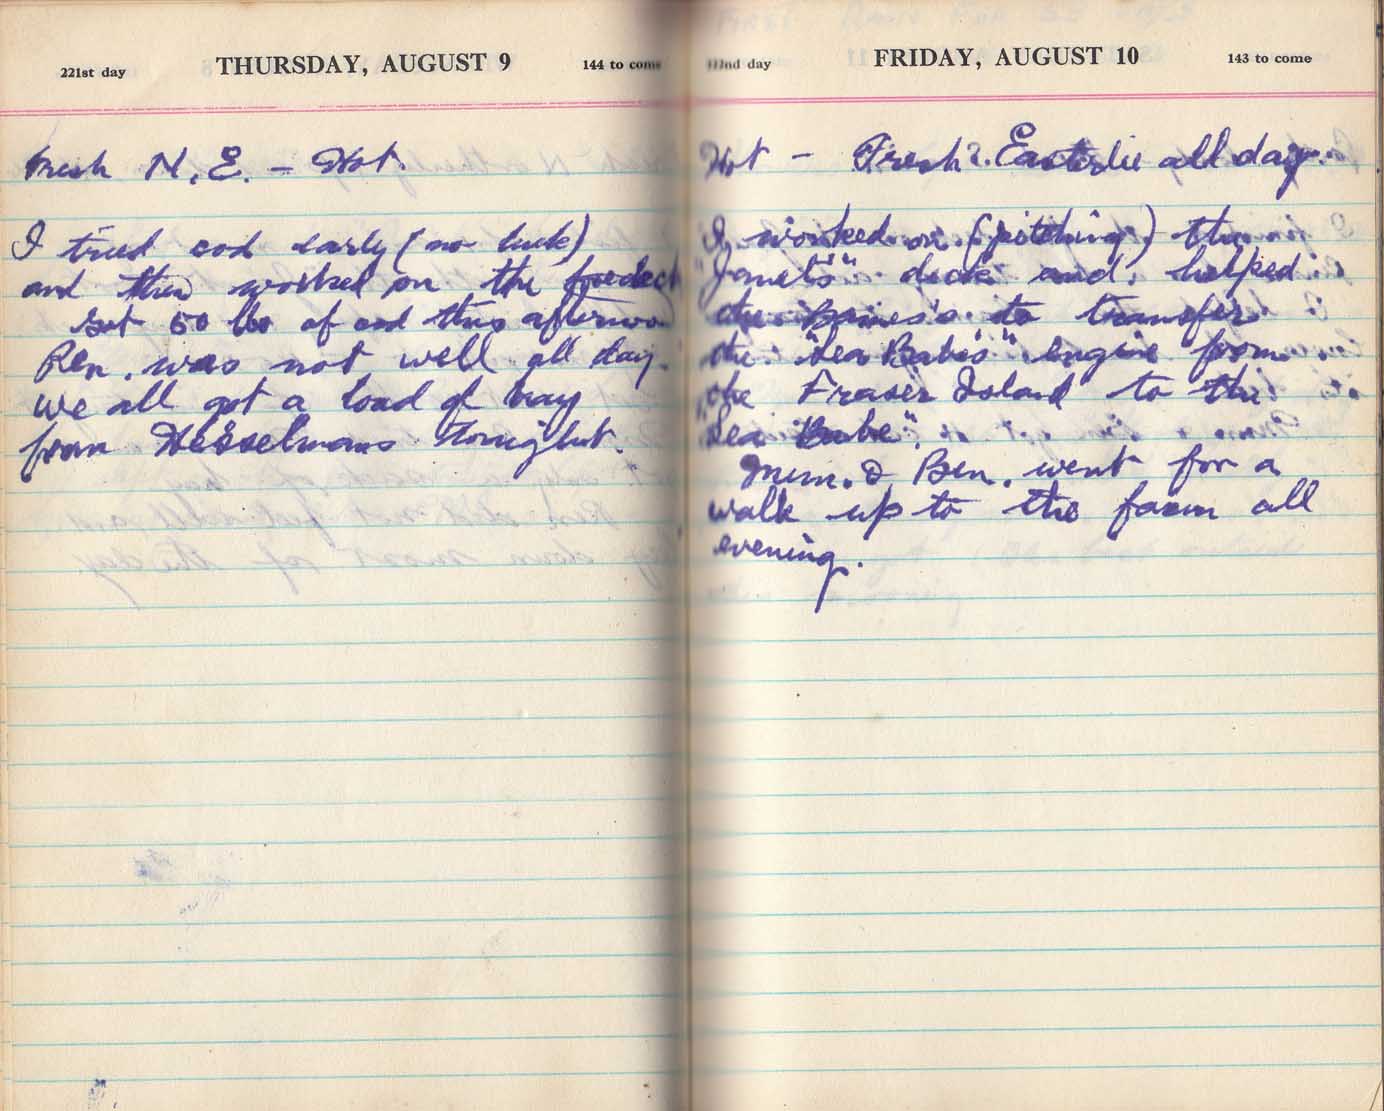 221st day THURSDAY, AUGUST 9 144 to come
Fresh N.E. – Hot.
I tried cod early (no luck)
and then worked on the foredeck
Got 50 lbs of cod this afternoon
Ben. was not well all day.
We all got a load of hay
from Hesselmans tonight.
222nd day FRIDAY, AUGUST 10 143 to come
Hot – Fresh Easterlie all day.
I worked on (pitching) the
"Janet's" deck and helped
the to transfer
the "Sea Babe's" engine from
the Fraser Island to the
"Sea Babe".
Mum. & Ben. went for a
walk up to the farm all
evening.